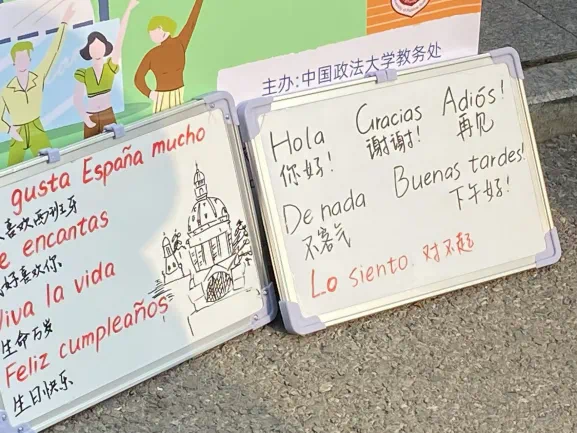 主办:中国政法大学教务处
gusta España mucho
喜欢西班牙
e encantas
好喜欢你
Viva la vida
生命万岁
Feliz cumpleaños
生日快乐
Hola Gracias Adiós!
你好! 谢谢! 再见
De nada Buenas tardes!
不客气 下午好!
Lo siento 对不起